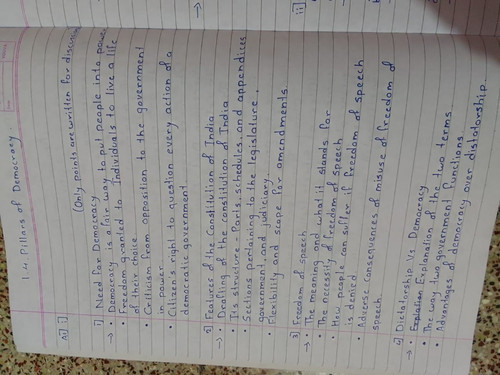 1.4 Pillars of Democracy
(Only points are written for discussion
A] i]
1) Need for Democracy
→ • Democracy is a fair way to put people into power
• Freedom granted to individuals to live a life
of their choice
• Criticism from opposition to the government
in power
• Citizen's right to question every action of a
democratic government
2) Features of the Constitution of India
→ • Drafting of the constitution of India
• Its structure - Parts, schedules, and appendices
• Sections pertaining to the legislature,
government, and judiciary.
• Flexibility and scope for amendments
3) Freedom of speech
→ • The meaning and what it stands for
• The necessity of freedom of speech
• How people can suffer if freedom of speech
is denied
• Adverse consequences of misuse of freedom of
speech.
4) Dictatorship Vs. Democracy
→ • Explanation of the two terms
• The way two government functions
• Advantages of democracy over distatorship.
→
ii]